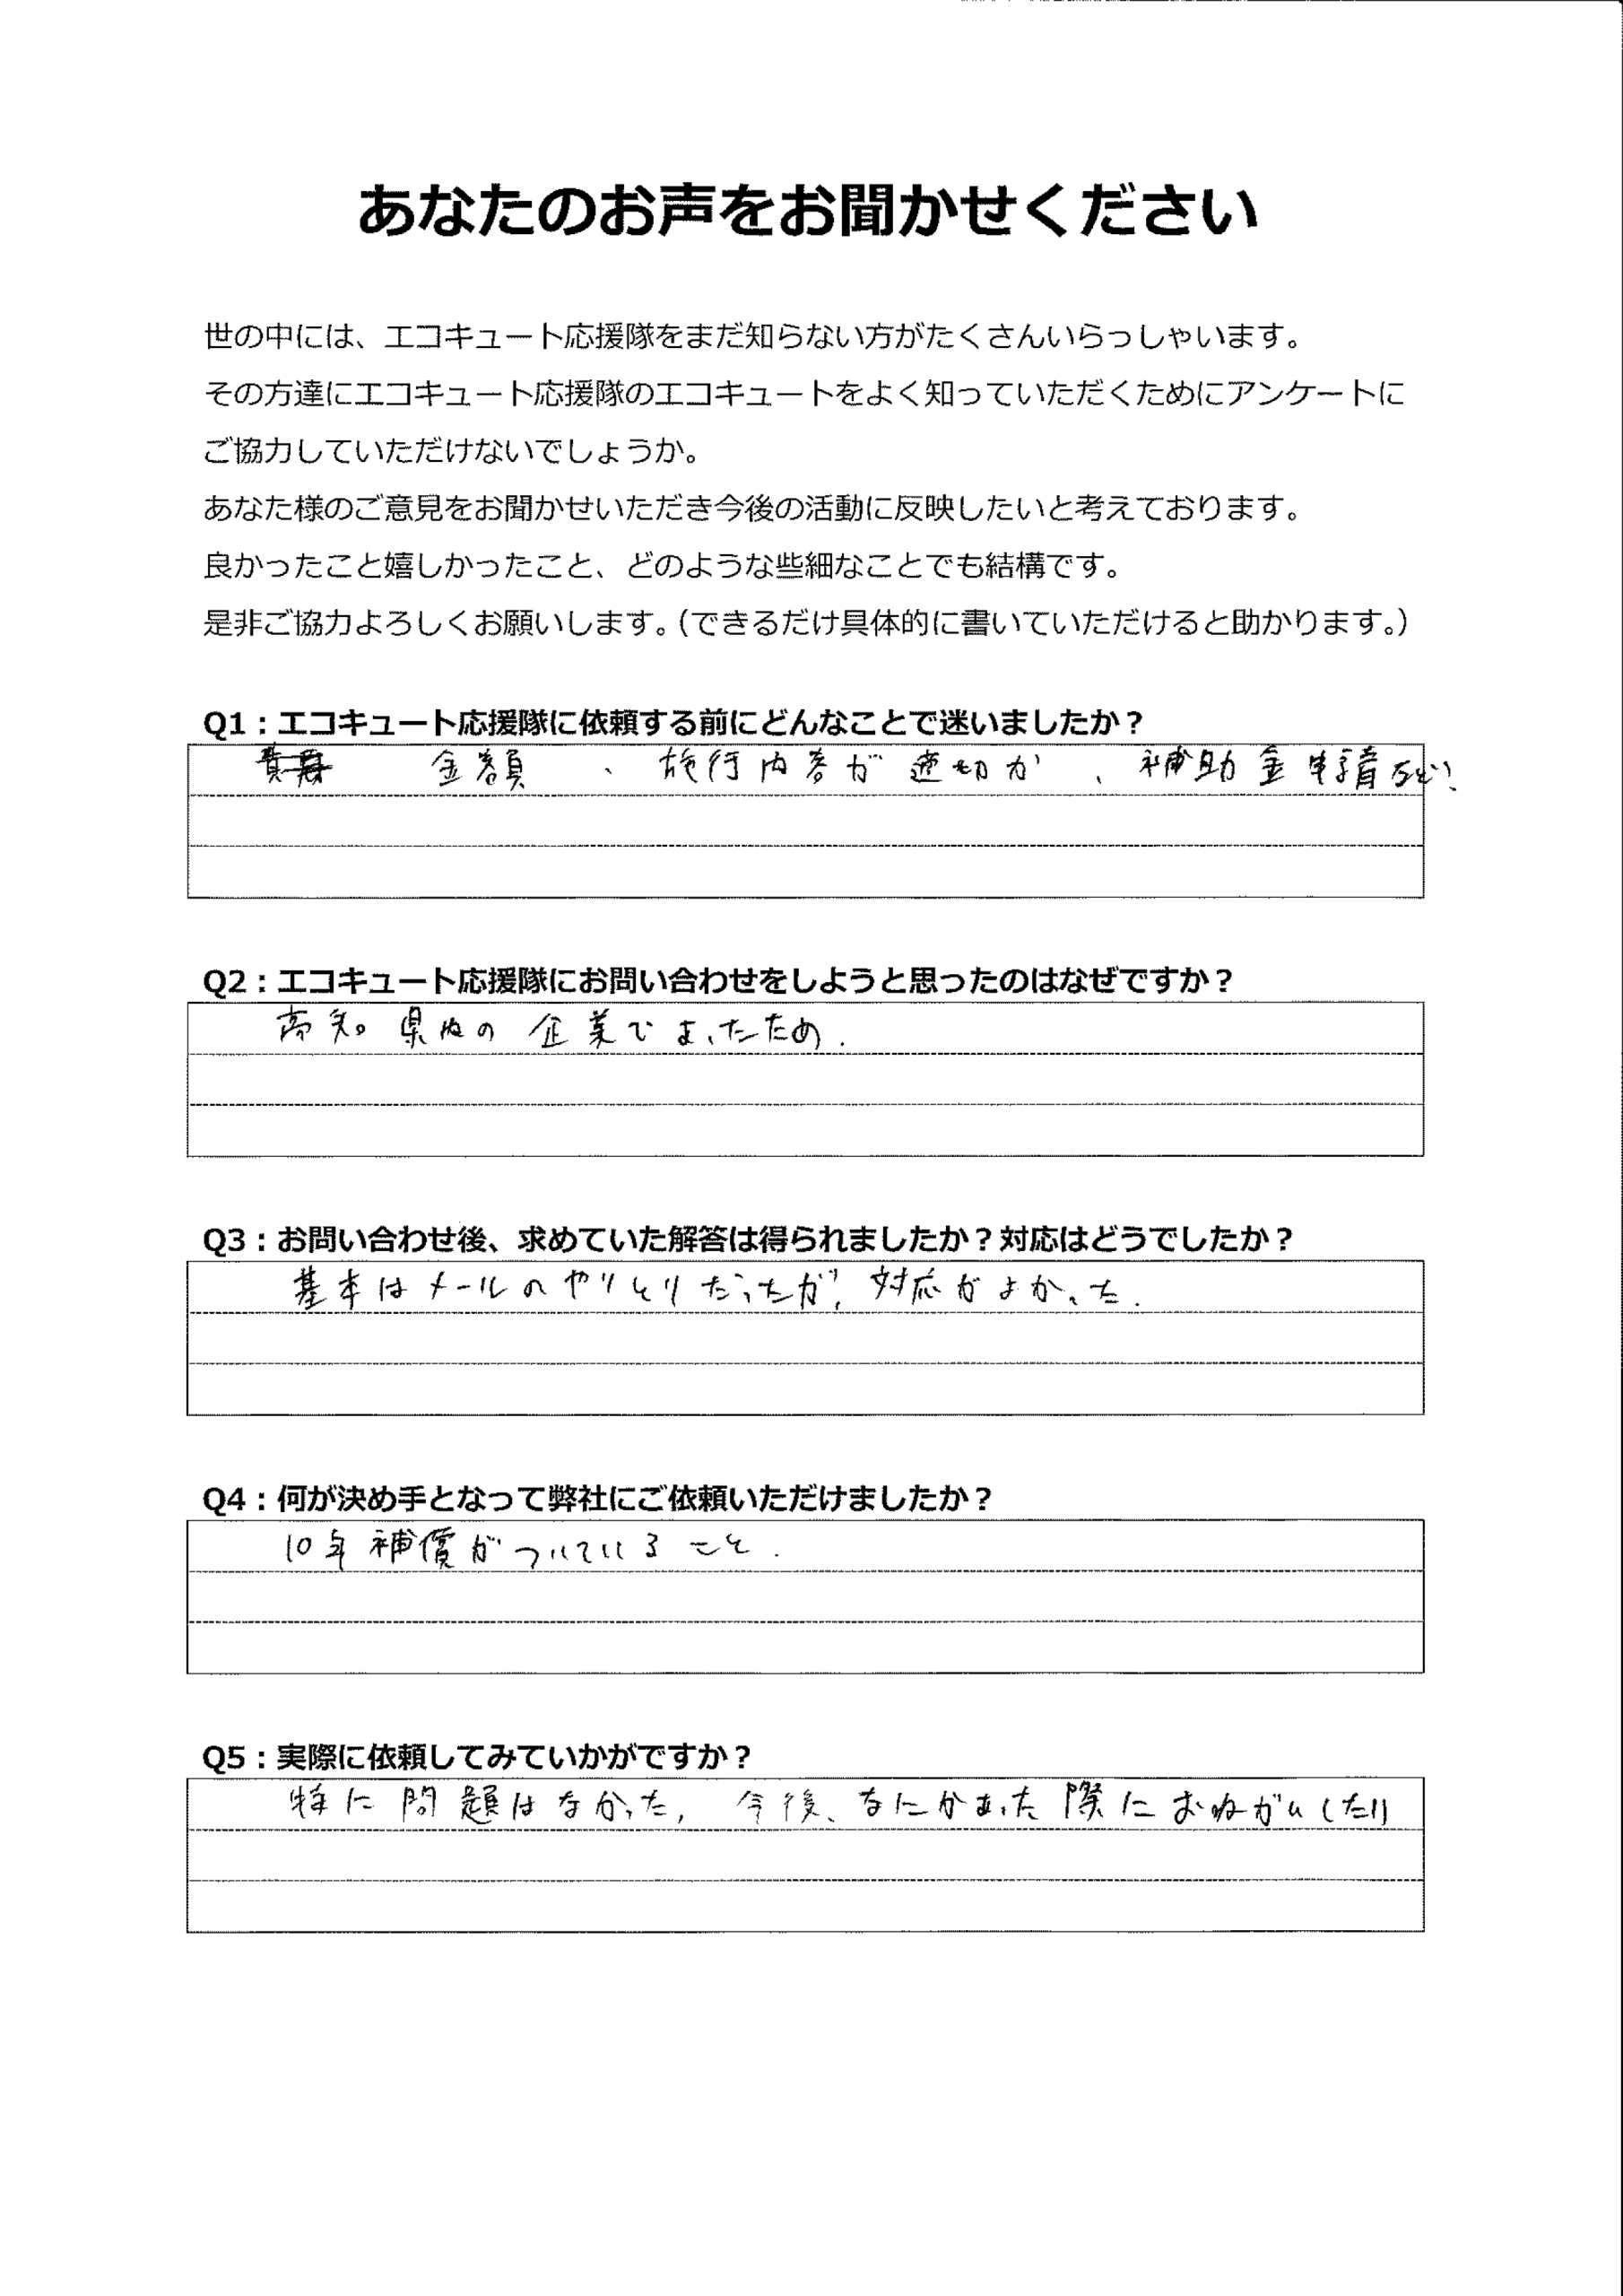 あなたのお声をお聞かせください
世の中には、エコキュート応援隊をまだ知らない方がたくさんいらっしゃいます。
その方達にエコキュート応援隊のエコキュートをよく知っていただくためにアンケートに
ご協力していただけないでしょうか。
あなた様のご意見をお聞かせいただき今後の活動に反映したいと考えております。
良かったこと嬉しかったこと、どのような些細なことでも結構です。
是非ご協力よろしくお願いします。（できるだけ具体的に書いていただけると助かります。）
Q1：エコキュート応援隊に依頼する前にどんなことで迷いましたか？
金額、施行内容が適切か、補助金申請など、
Q2：エコキュート応援隊にお問い合わせをしようと思ったのはなぜですか？
高知県内の企業であったため.
Q3：お問い合わせ後、求めていた解答は得られましたか？対応はどうでしたか？
基本はメールのやりとりだったが、対応がよかった.
Q4：何が決め手となって弊社にご依頼いただけましたか？
10年補償がついていること.
Q5：実際に依頼してみていかがですか？
特に問題はなかった, 今後、なにかあった際におねがいしたい